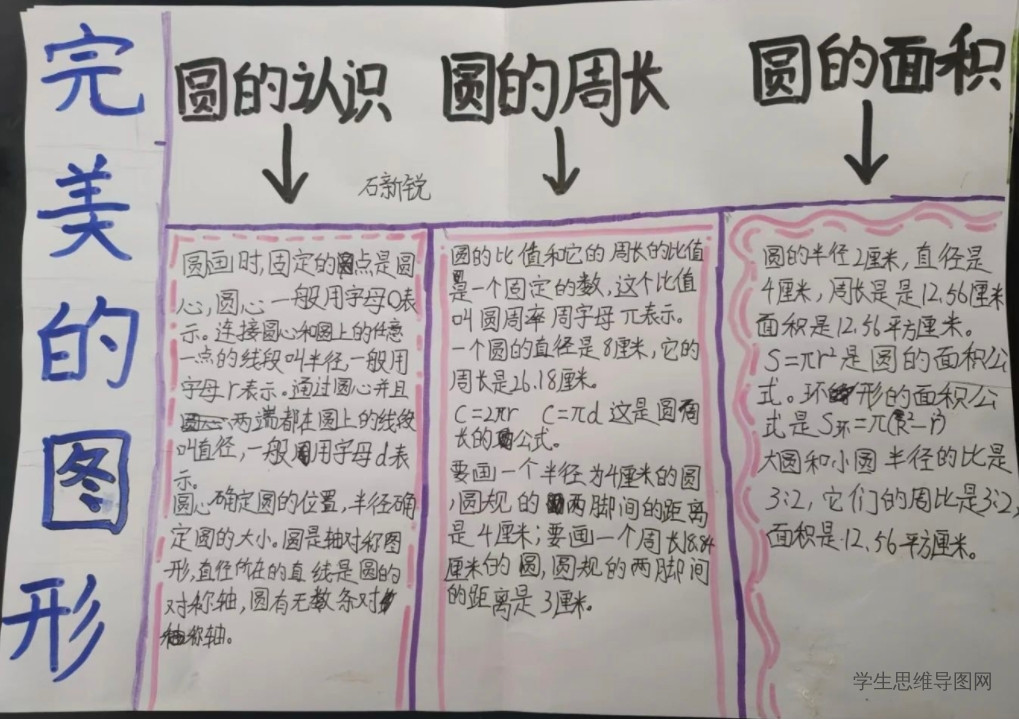 完美的图形
圆的认识
石新锐
圆画时,固定的点是圆
心,圆心一般用字母O表
示。连接圆心和圆上的任意
一点的线段叫半径,一般用
字母r表示。通过圆心并且
两端都在圆上的线段
叫直径,一般用字母d表
示。
圆心确定圆的位置,半径确
定圆的大小。圆是轴对称图
形,直径所在的直线是圆的
对称轴,圆有无数条对
称轴。
圆的周长
圆的比值和它的周长的比值
是一个固定的数,这个比值
叫圆周率 周字母π表示。
一个圆的直径是8厘米,它的
周长是26.18厘米。
C=2πr C=πd 这是圆周
长的公式。
要画一个半径为4厘米的圆
,圆规的两脚间的距离
是4厘米;要画一个周长18.84
厘米的圆,圆规的两脚间
的距离是3厘米。
圆的面积
圆的半径2厘米,直径是
4厘米,周长是是12.56厘米
面积是12.56平方厘米。
S=πr²是圆的面积公
式。环形的面积公
式是S环=π(R²-r²)
大圆和小圆半径的比是
3:2,它们的周比是3:2,
面积是12.56平方厘米。
学生思维导图网